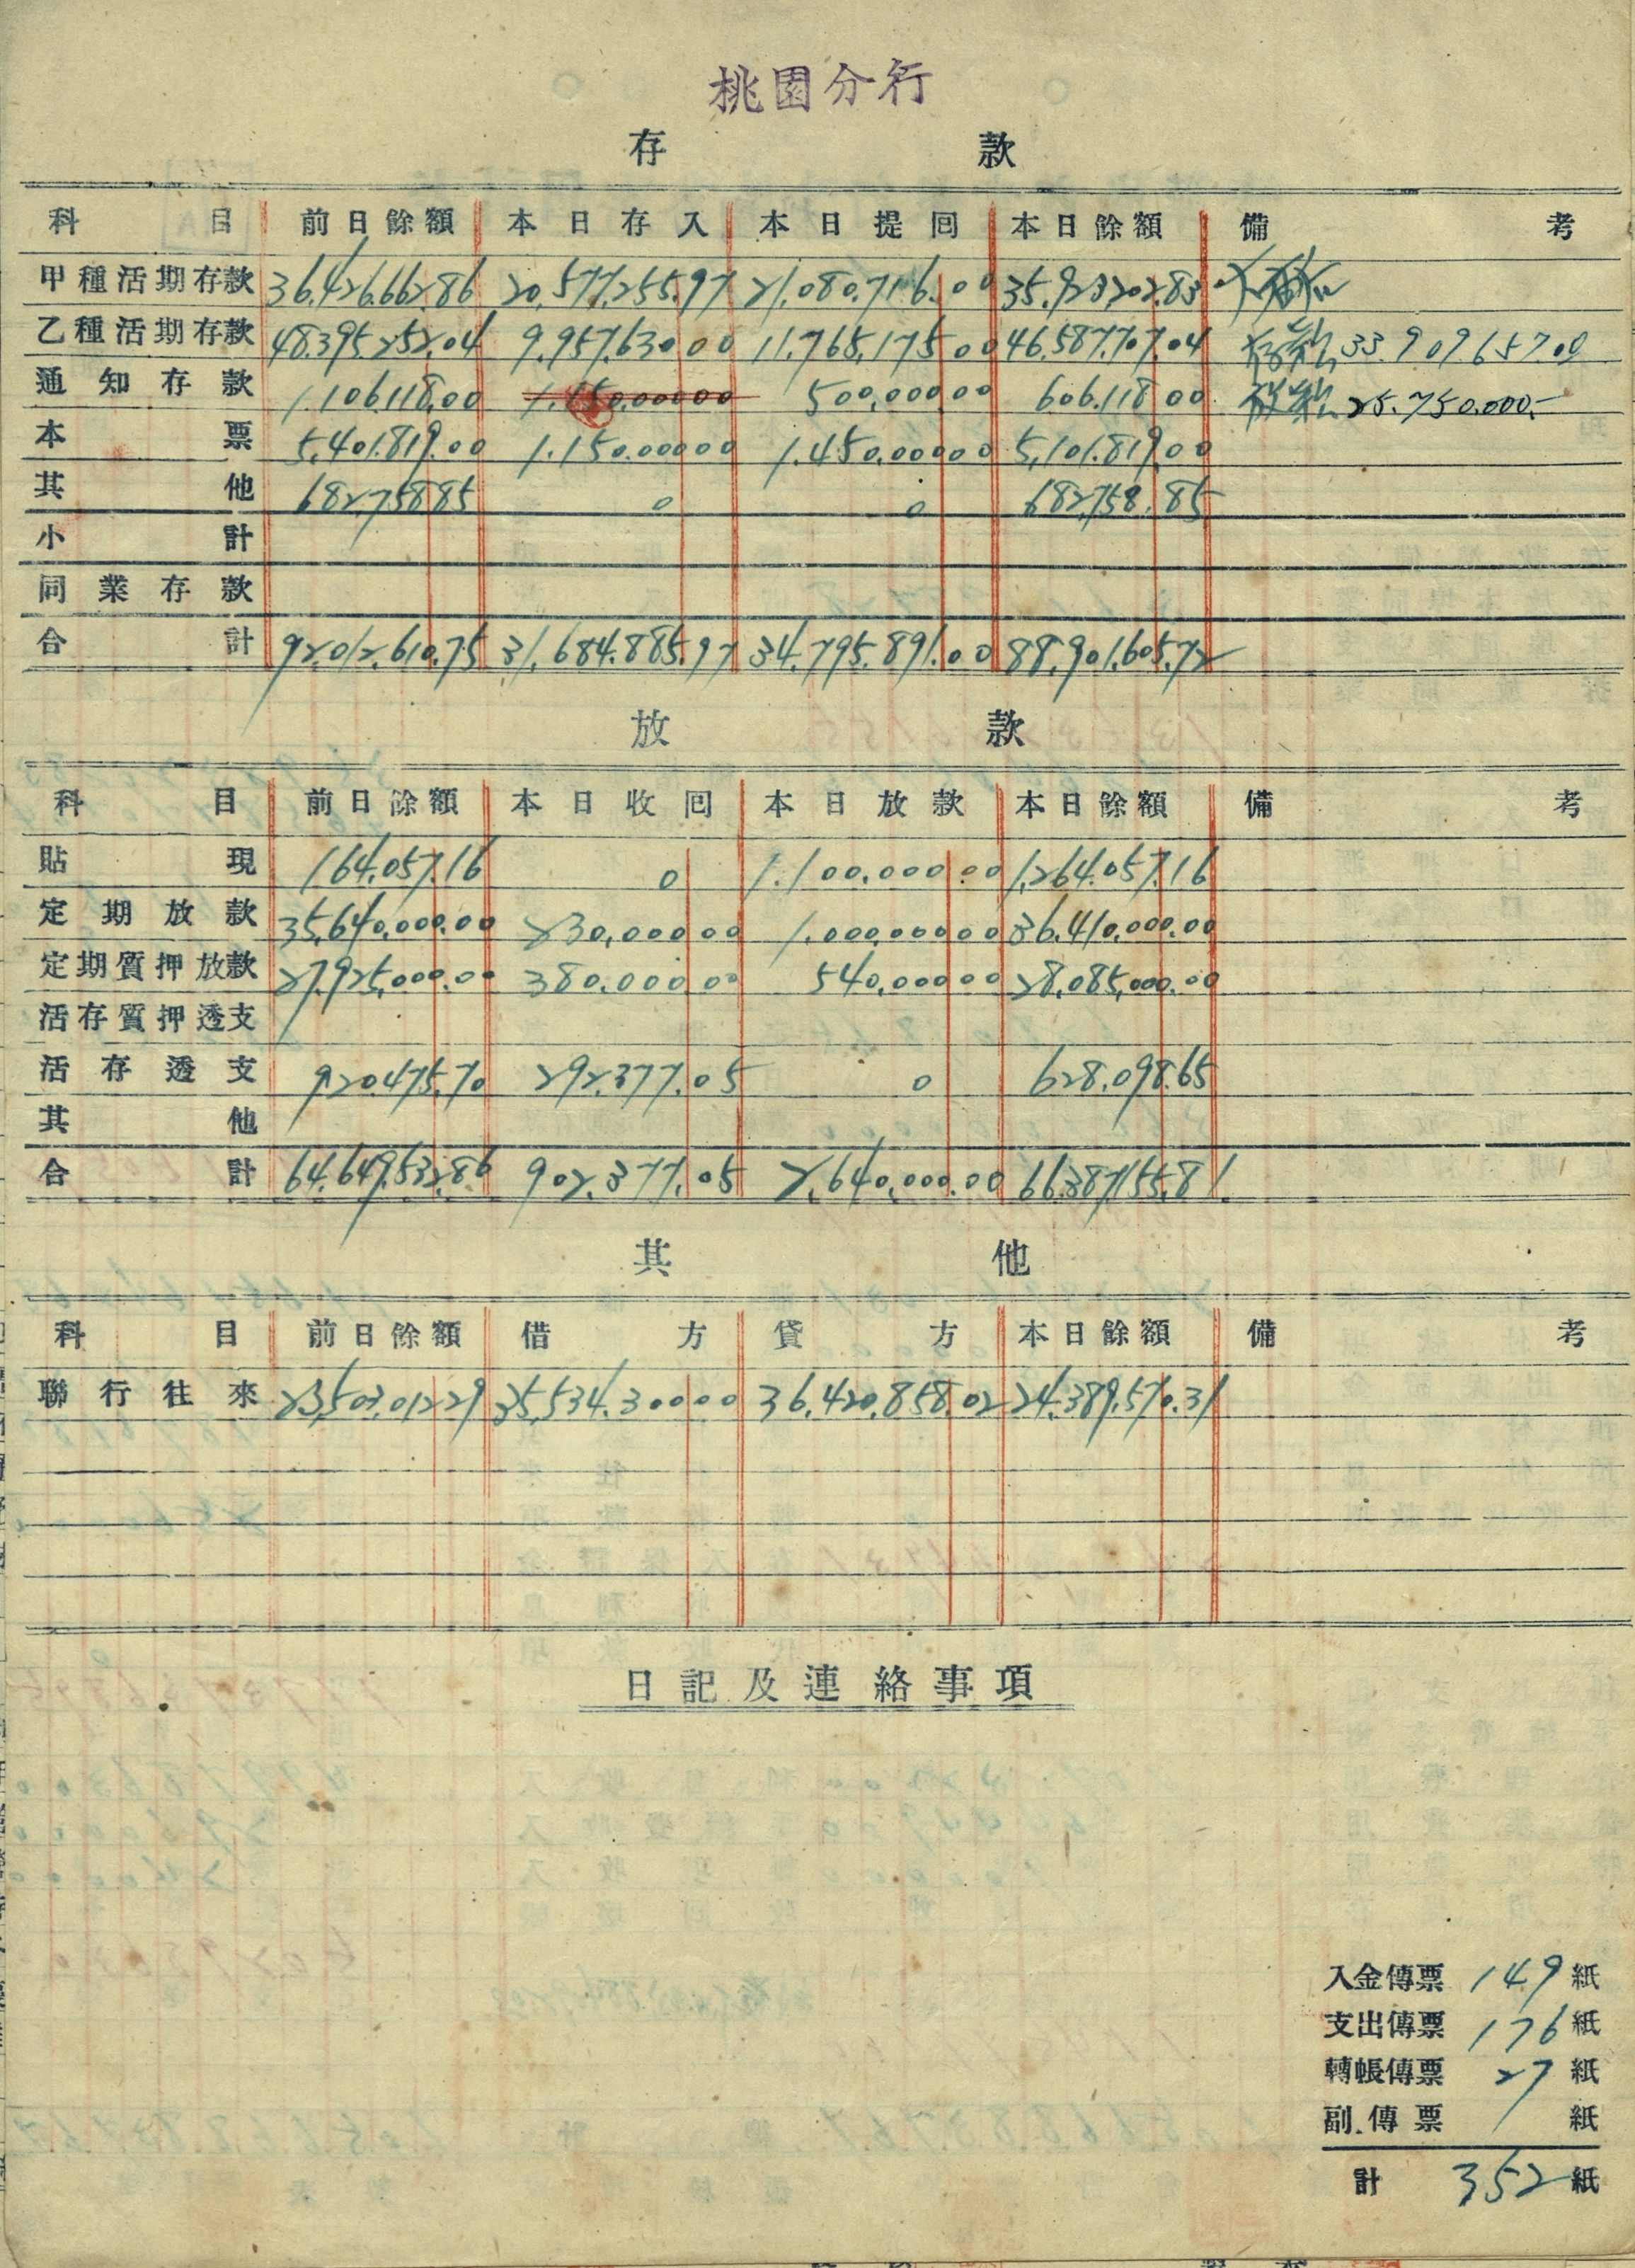 桃園分行
存 款
科目 前日餘額 本日存入 本日提囘 本日餘額 備考
甲種活期存款 36,426,662.86 20,577,255.97 21,080,716.00 35,923,202.83
乙種活期存款 48,395,252.04 9,957,630.00 11,765,175.00 46,587,707.04 存款 33.909.657.00
通知存款 1,106,118.00 1,150,000.00 500,000.00 606,118.00 放款 25.750.000.-
本票 5,401,819.00 1,150,000.00 1,450,000.00 5,101,819.00
其他 682,758.85 0 0 682,758.85
小計
同業存款
合計 92,012,610.75 31,684,885.97 34,795,891.00 88,901,605.72
放 款
科目 前日餘額 本日收囘 本日放款 本日餘額 備考
貼現 164,057.16 0 1,100,000.00 1,264,057.16
定期放款 35,640,000.00 230,000.00 1,000,000.00 36,410,000.00
定期質押放款 27,925,000.00 380,000.00 540,000.00 28,085,000.00
活存質押透支
活存透支 920,475.70 292,377.05 0 628,098.65
其他
合計 64,649,532.86 902,377.05 2,640,000.00 66,387,155.81
其 他
科目 前日餘額 借方 貸方 本日餘額 備考
聯行往來 23,503,012.29 35,534,300.00 36,420,858.02 24,389,570.31
日記及連絡事項
入金傳票 149 紙
支出傳票 176 紙
轉帳傳票 27 紙
副傳票 / 紙
計 352 紙